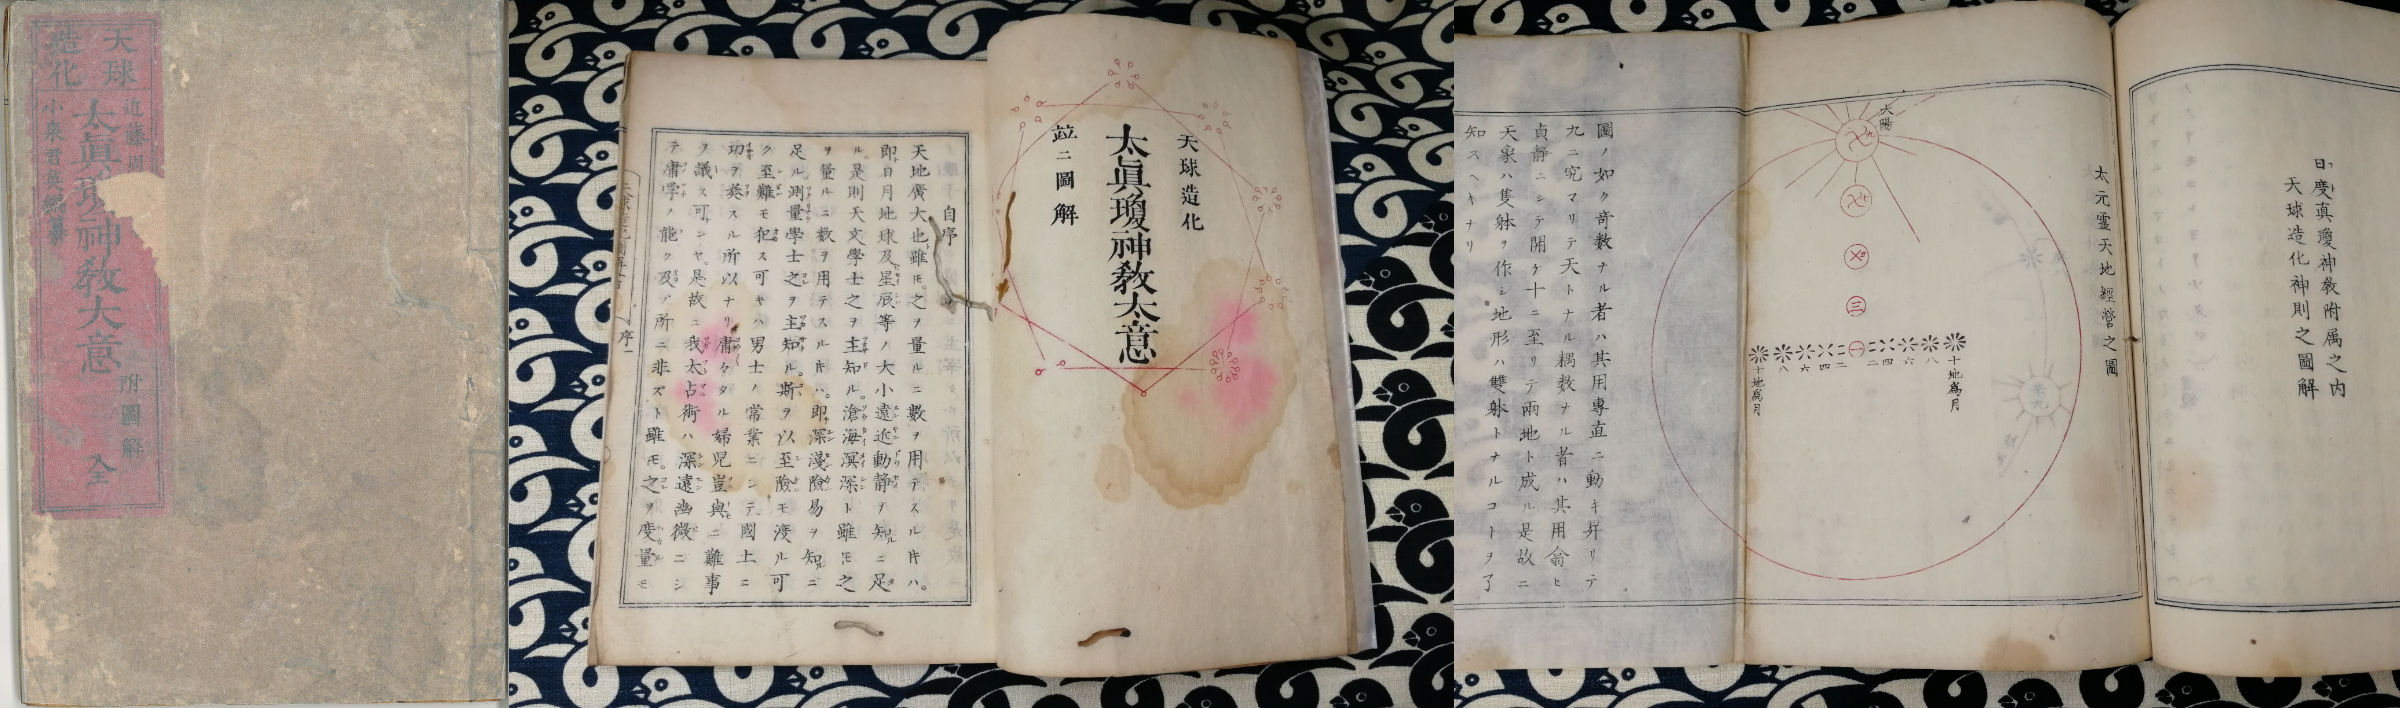 天球
造化
近藤
太眞瓊神教大意
小泉君英編纂
附圖解
全
天球造化
太眞瓊神教太意
竝ニ圖解
自序
天地廣大也雖モ。之ヲ量ルニ數ヲ用テスル片ハ。
即日月地球及星辰等ノ大小遠近動静ヲ知ニ足
ル。是則天文學士之ヲ主知ル。滄海溟深ト雖モ之
ヲ量ルニ数ヲ用テスル片ハ。即深淺險易ヲ知ニ
足ル測量學士之ヲ主知ル。斯ヲ以至險モ渡ル可
ク至難モ犯ス可キハ男士ノ常業ニシテ國土ニ
功ヲ奏スル所以ナリ庸々タル婦児豈與ニ難事
ヲ議ス可ンヤ。是故ニ我太占術ハ深遠幽微ニシ
テ庸学ノ能ク及フ所ニ非ズト雖モ。之ヲ度量モ
序一
日度真瓊神教附属之内
天球造化神則之圖解
太元霊天地經營之圖
太陽
三
一
二 四 六 八 十地為月
二 四 六 八 十地為月
圖ノ如ク奇数ナル者ハ其用専直ニ動キ昇リテ
九ニ究マリテ天トナル耦数ナル者ハ其用翕ヒ
貞静ニシテ開ケ十ニ至リテ兩地ト成ル是故ニ
天象ハ隻躰ヲ作シ地形ハ雙躰トナルコトヲ了
知スヘキナリ